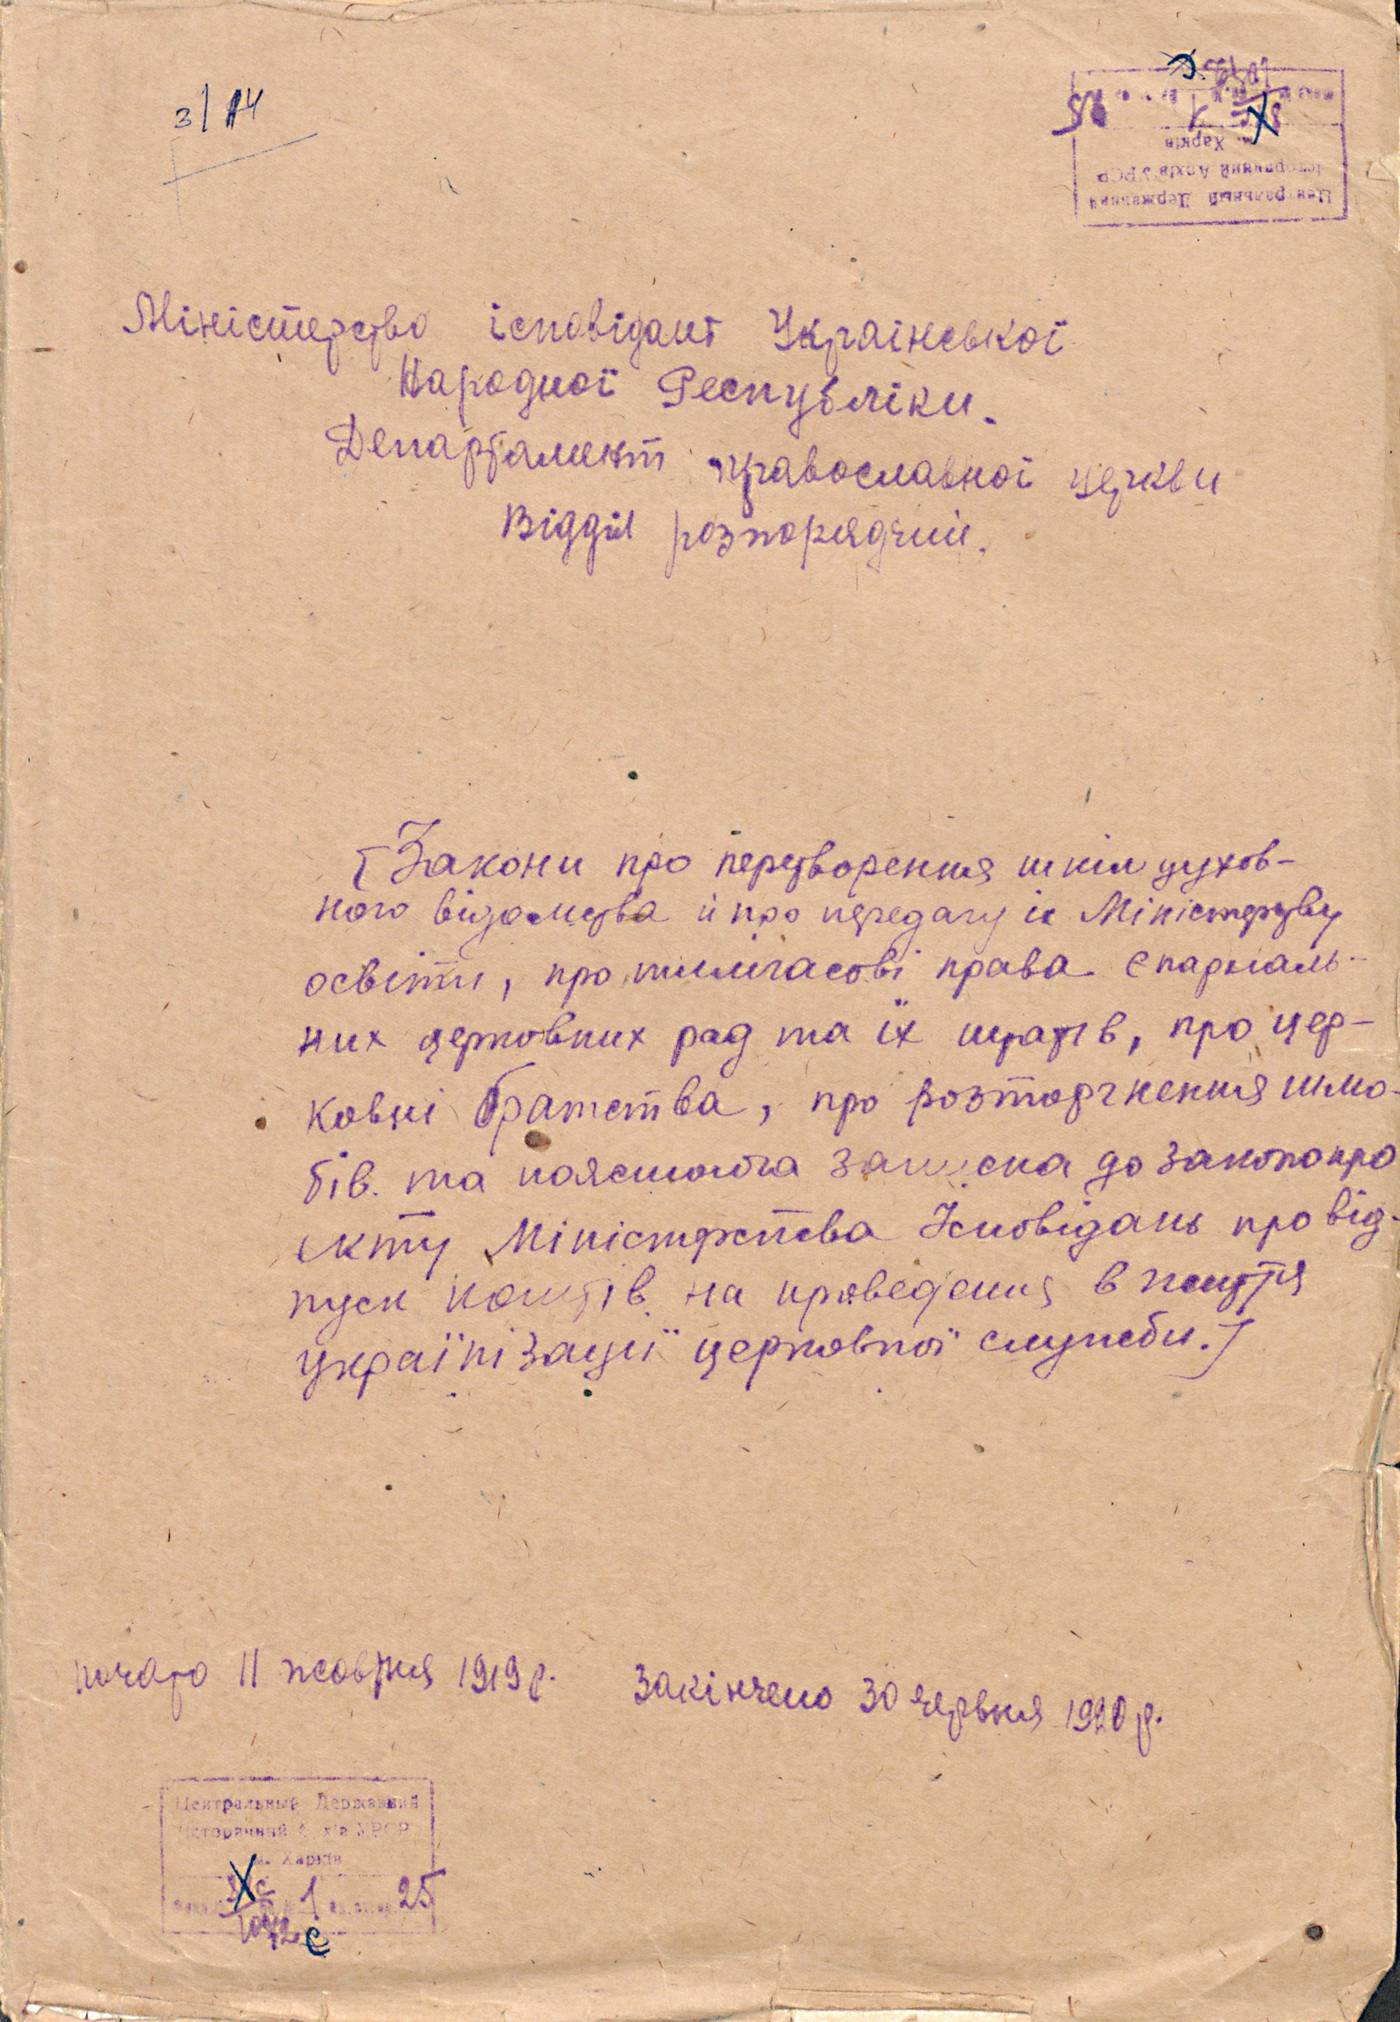 3/14
Центральный Державний
Історичний Архів УРСР
м. Харків
Міністерство ісповідань Української
Народної Республіки.
Департамент православної церкви
Відділ розпорядчий.
[Закони про перетворення шкіл духов-
ного відомства й про передачу їх Міністерству
освіти, про тимчасові права єпархіаль-
них церковних рад та їх штатів, про цер-
ковні братства, про розторгнення шлю-
бів. та пояснююча записка до законопро
екту Міністерства Ісповідань про від-
пуск коштів на проведення в життя
українізації церковної служби.]
почато 11 жовтня 1919 р. Закінчено 30 червня 1920 р.
Центральный Державний
Історичний Архів УРСР
м. Харків
1 25
с